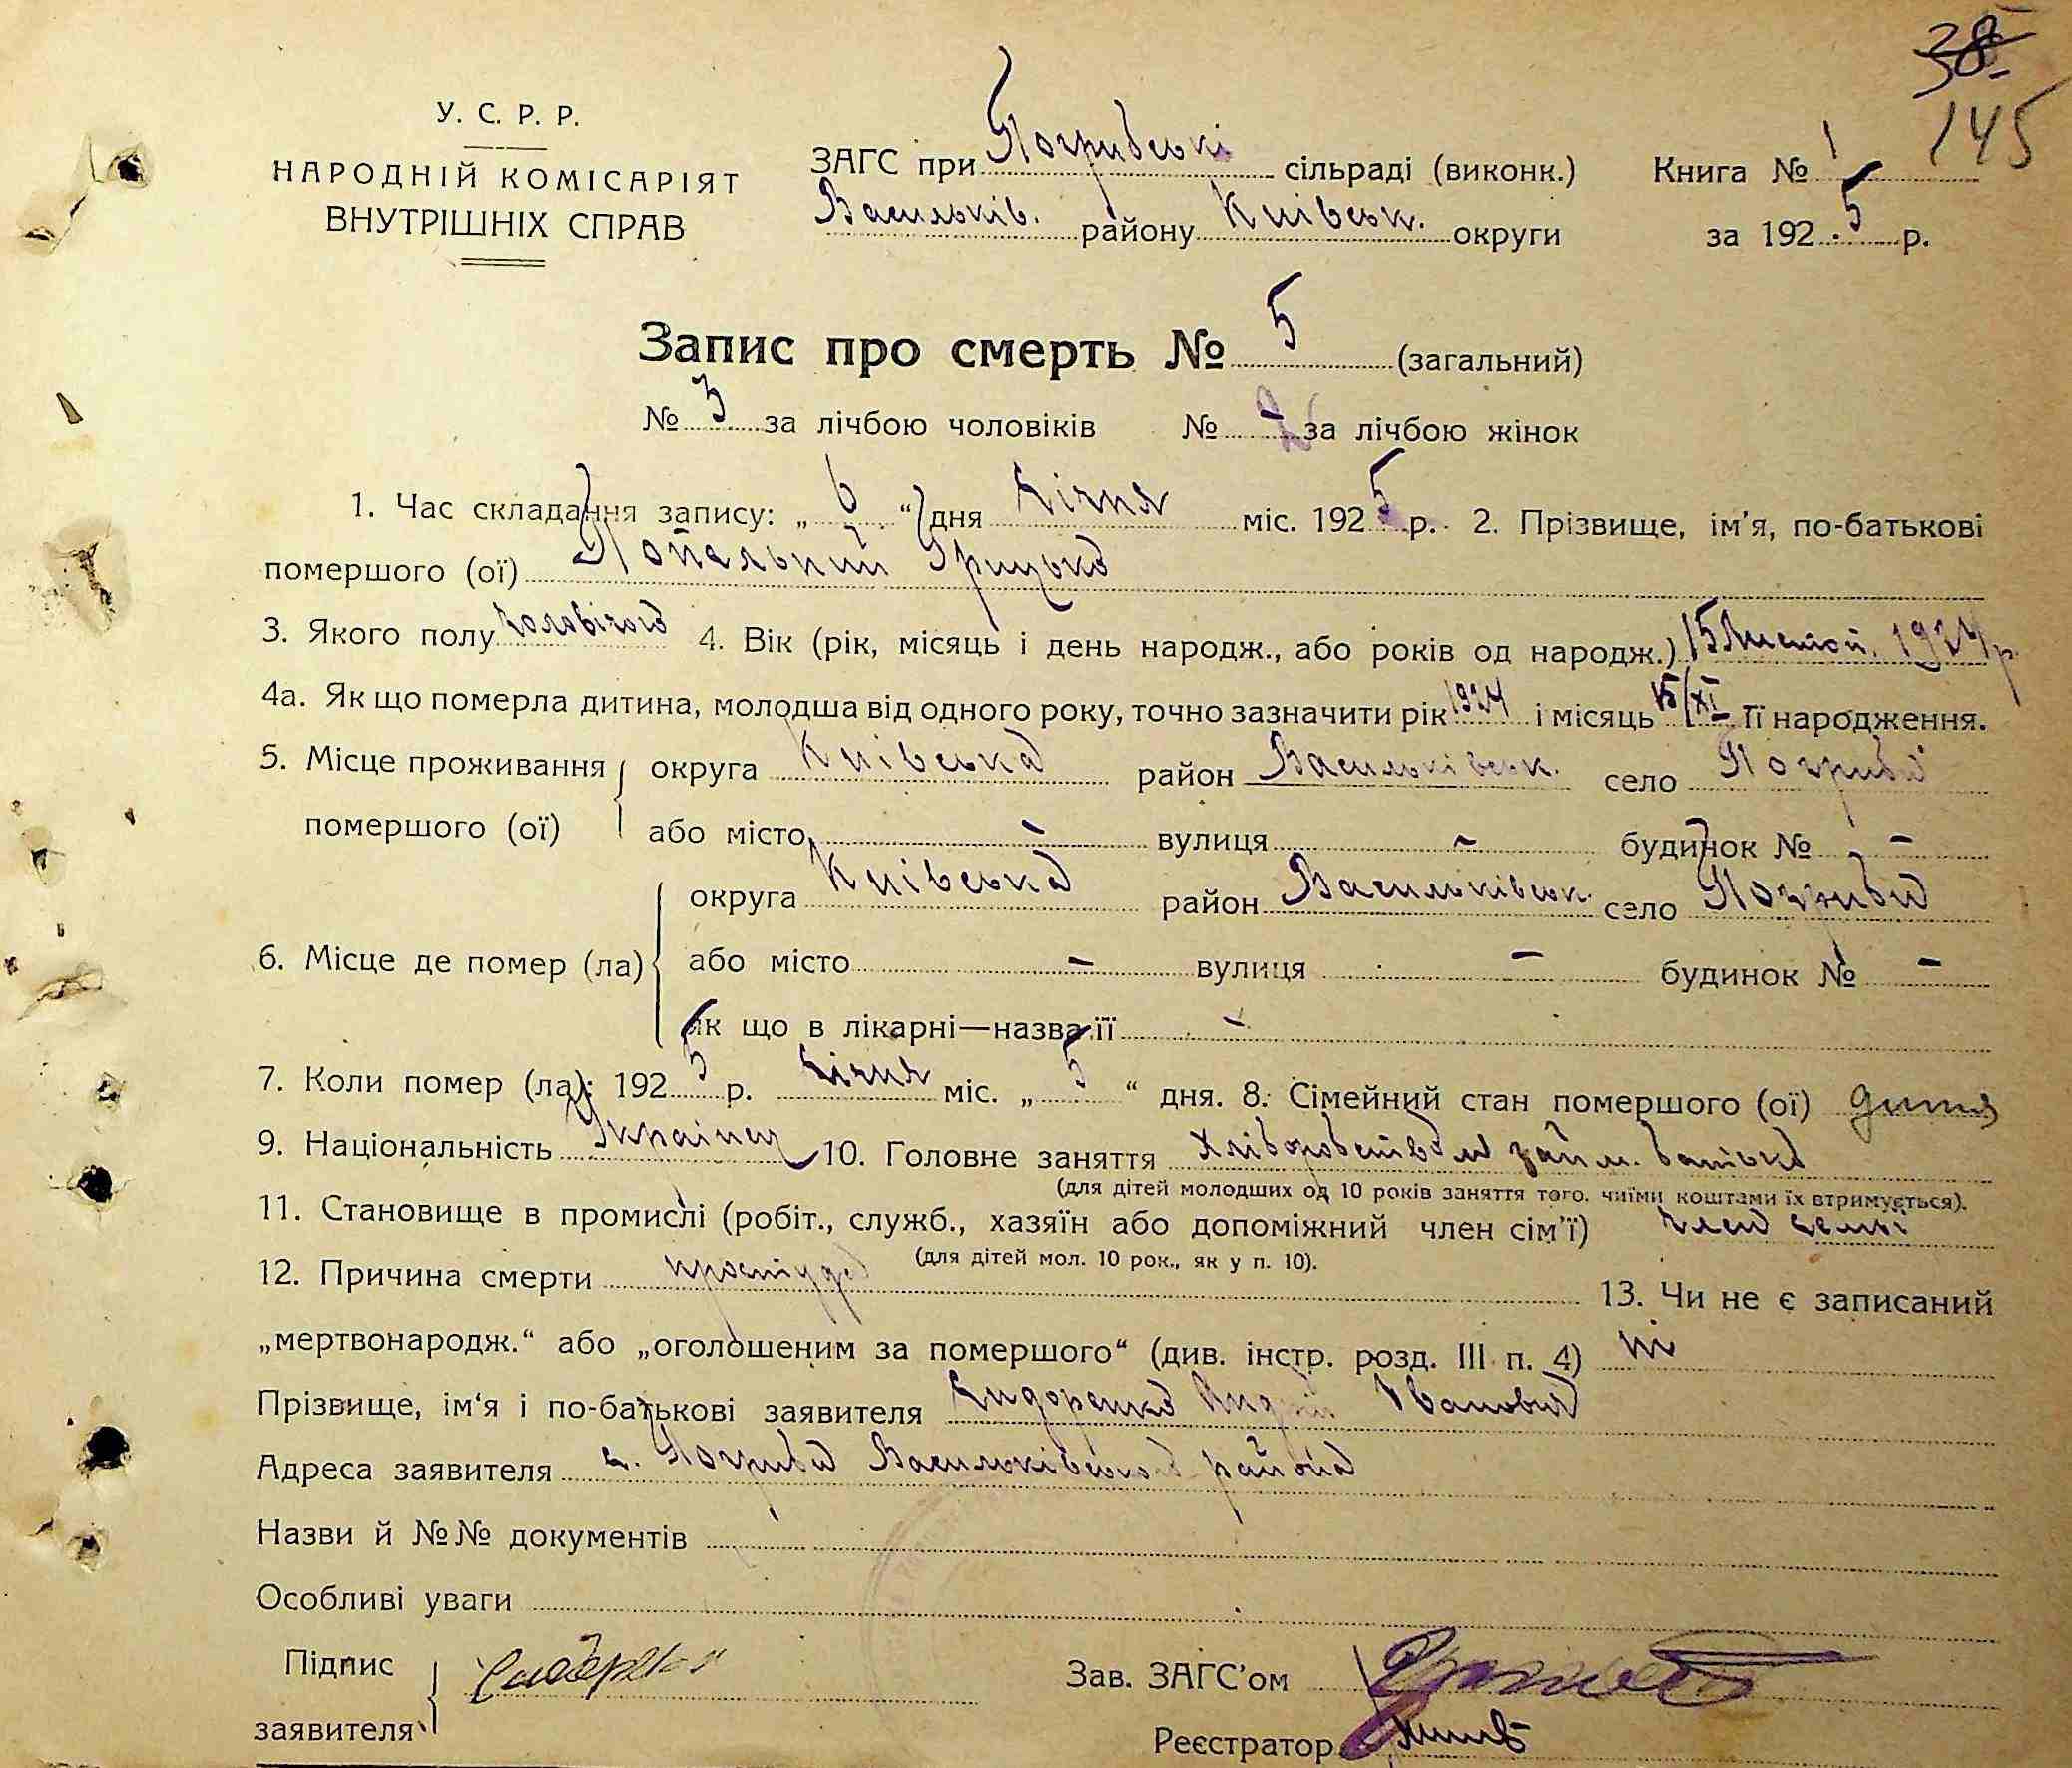 38
145
У. С. Р. Р.
НАРОДНІЙ КОМІСАРІЯТ
ВНУТРІШНІХ СПРАВ
ЗАГС при Погребські сільраді (виконк.) Книга № 1
Васильків. району Київськ. округи за 1925 р.
Запис про смерть № 5 (загальний)
№ 3 за лічбою чоловіків № за лічбою жінок
1. Час складання запису: „ 6 “ дня Січня міс. 1925 р. 2. Прізвище, ім’я, по-батькові
помершого (ої) Грицько
3. Якого полу чоловічого 4. Вік (рік, місяць і день народж., або років од народж.) 15 Листоп. 1924 р.
4а. Як що померла дитина, молодша від одного року, точно зазначити рік 1924 і місяць 15/XI її народження.
5. Місце проживання округа Київська район Васильківськ. село Погриби
помершого (ої) або місто – вулиця – будинок № –
округа Київська район Васильківськ. село Погриби
6. Місце де помер (ла) або місто – вулиця – будинок № –
як що в лікарні—назва її –
7. Коли помер (ла): 1925 р. Січня міс. „ 5 “ дня. 8. Сімейний стан помершого (ої) дитя
9. Національність Українец 10. Головне заняття хліборобством займ. батько
(для дітей молодших од 10 років заняття того, чиїми коштами їх втримується).
11. Становище в промислі (робіт., служб., хазяїн або допоміжний член сім’ї) член семьї
(для дітей мол. 10 рок., як у п. 10).
12. Причина смерти простуда 13. Чи не є записаний
„мертвонародж.“ або „оголошеним за помершого“ (див. інстр. розд. III п. 4) ні
Прізвище, ім‘я і по-батькові заявителя Сидоренко Андрій Іванович
Адреса заявителя с. Погриби Васильківського района
Назви й №№ документів
Особливі уваги
Підпис
заявителя
Зав. ЗАГС’ом
Реєстратор